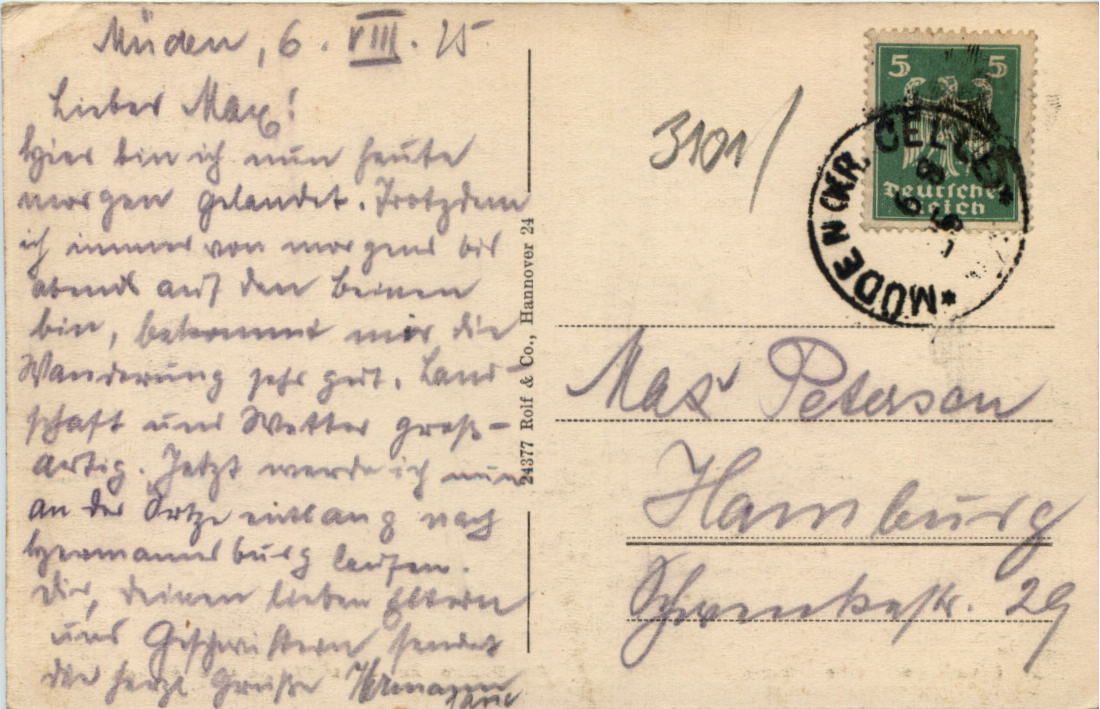 Müden, 6. VIII. 25
Lieber Max!
Hier bin ich nun heute
morgen gelandet. Trotzdem
ich immer von morgens bis
abends auf den Beinen
bin, bekommt mir die
Wanderung sehr gut. Land-
schaft und Wetter groß-
artig. Jetzt werde ich nun
an der Örtze entlang nach
Hermannsburg laufen.
Dir, deinen lieben Eltern
und Geschwistern sendet
die herzl Grüße Hermann
24377 Rolf & Co., Hannover 24
3101/
5 5
Deutsches
Reich
* MÜDEN (KR. CELLE) *
6 8
25
Max Petersen
Hamburg
Schwenckestr. 29